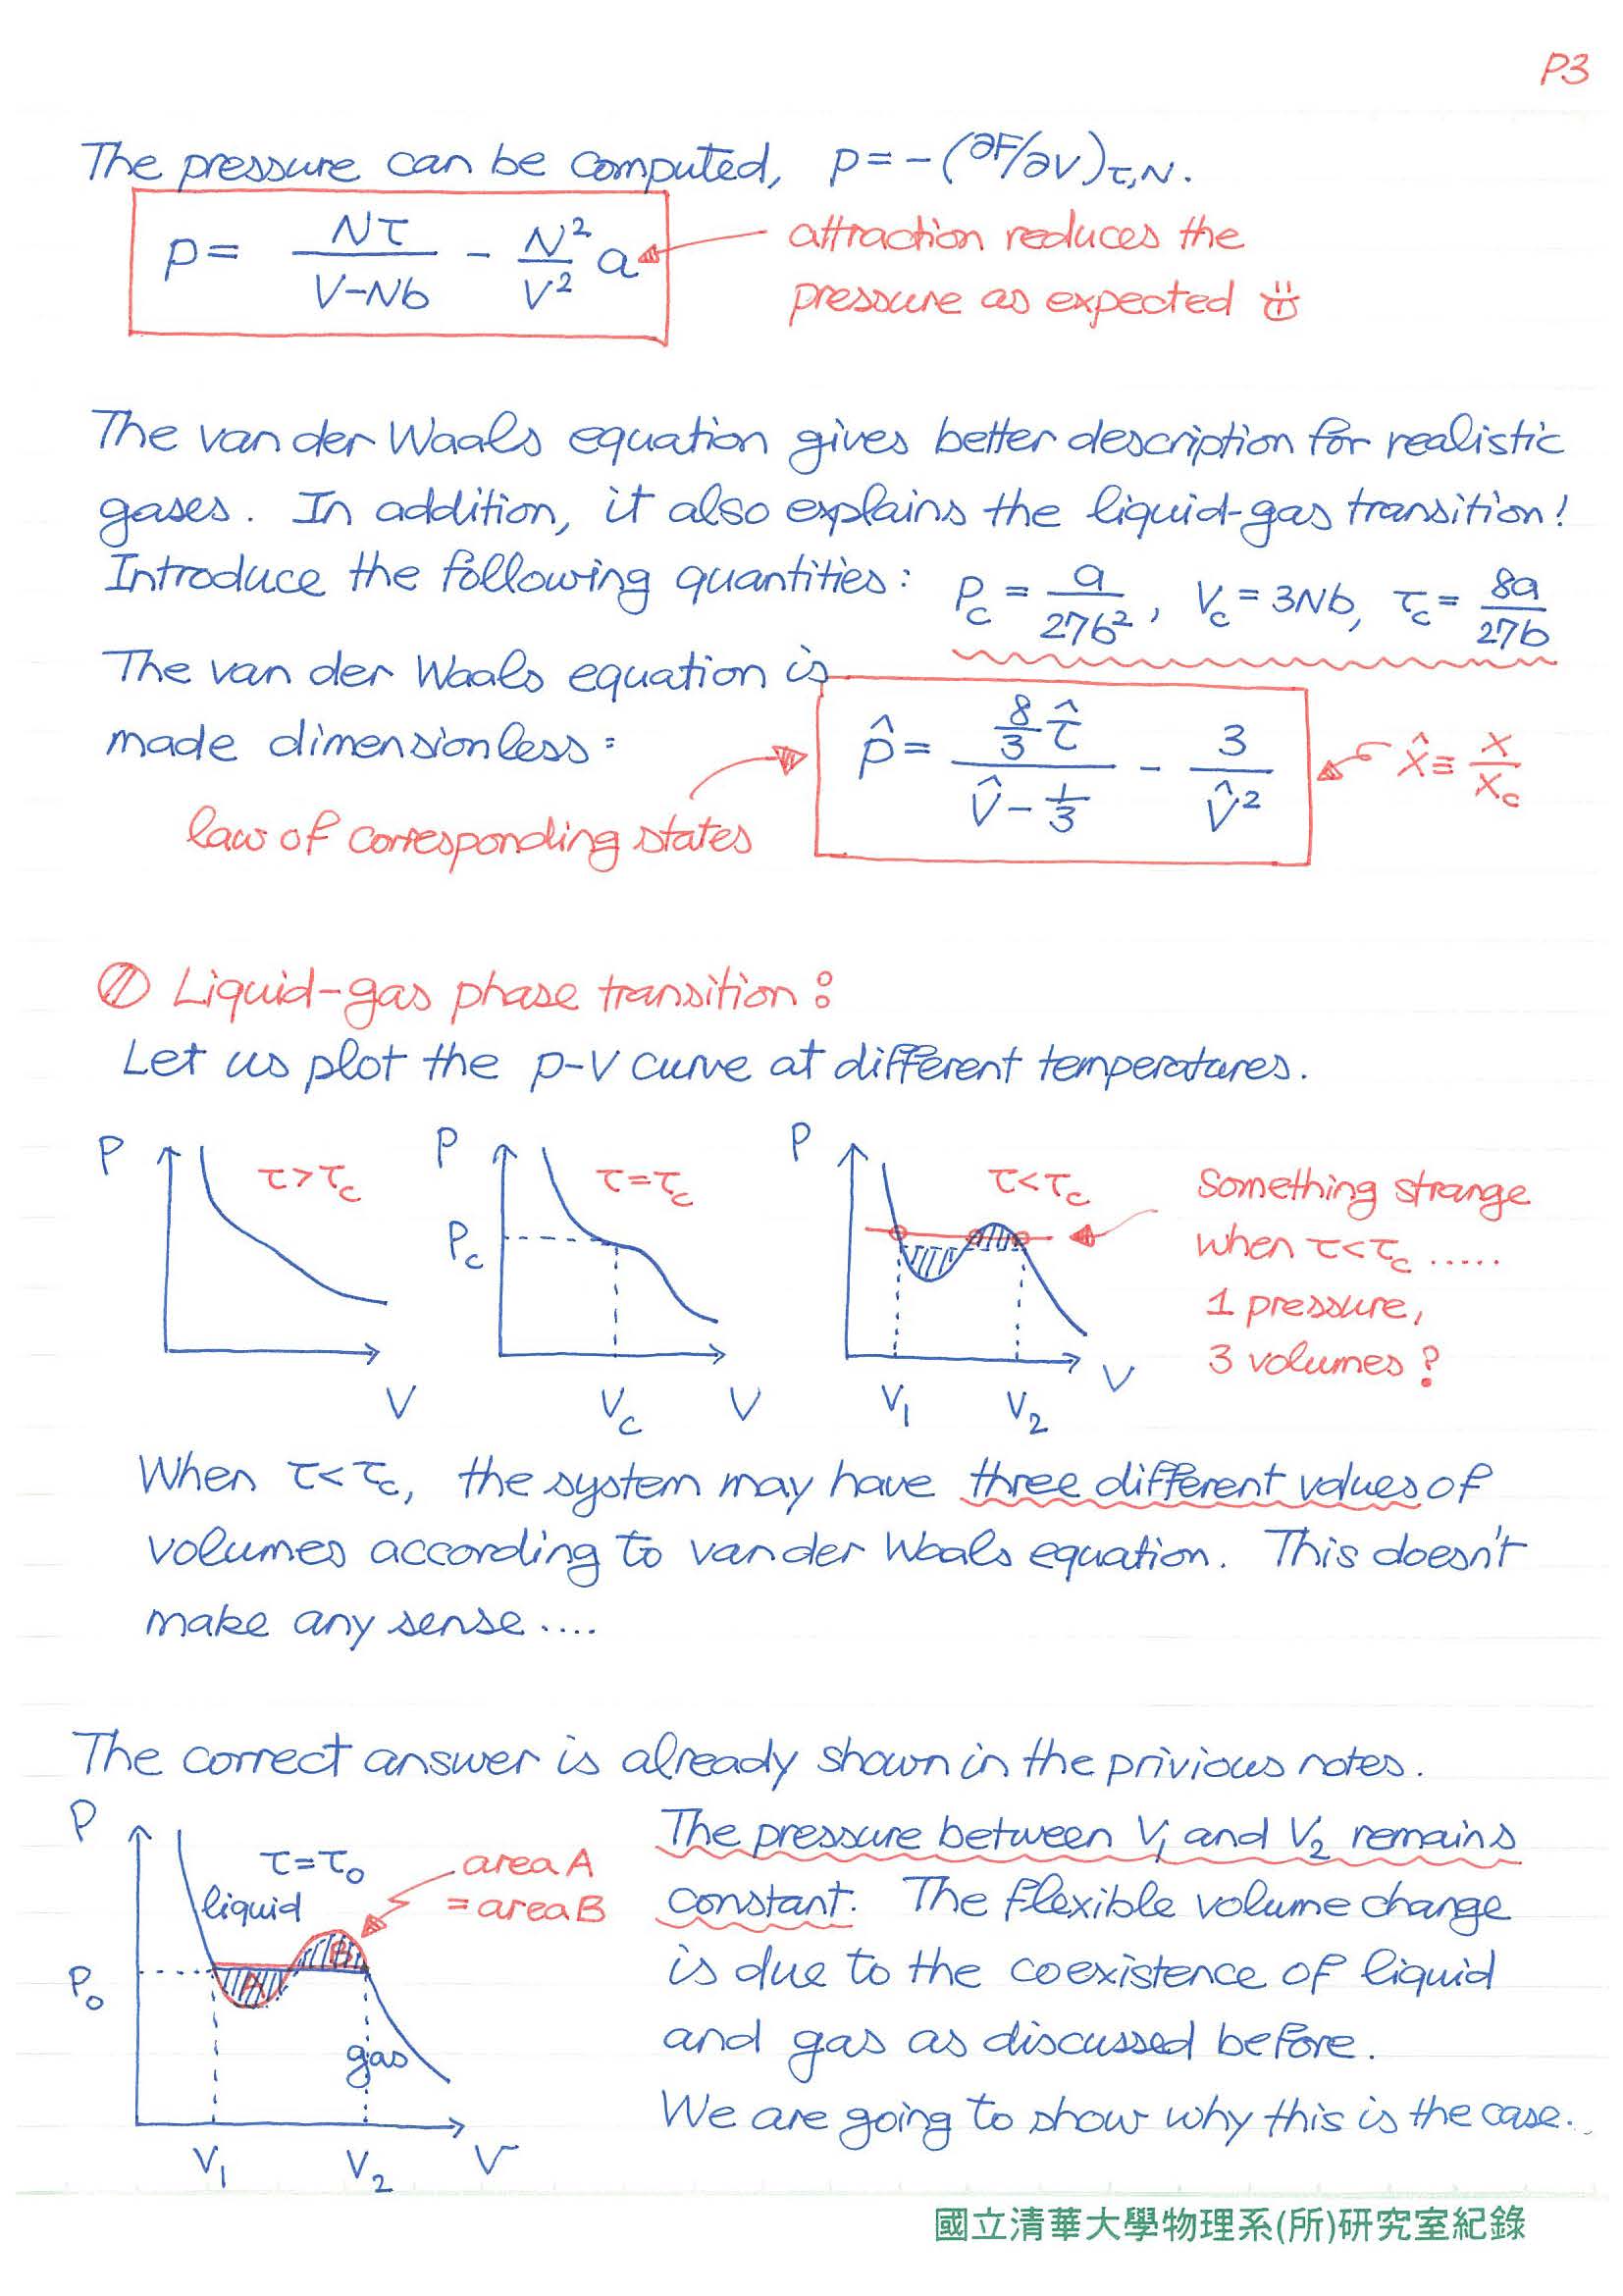 P3
The pressure can be computed, p = -(∂F/∂V)τ,N.
p = Nτ/(V-Nb) - N²/V² a
attraction reduces the
pressure as expected
The van der Waals equation gives better description for realistic
gases. In addition, it also explains the liquid-gas transition!
Introduce the following quantities: Pc = a/27b², Vc = 3Nb, τc = 8a/27b
The van der Waals equation is
made dimensionless:
p̂ = (8/3 τ̂)/(V̂ - 1/3) - 3/V̂²
x̂ ≡ x/xc
law of corresponding states
Liquid-gas phase transition:
Let us plot the p-V curve at different temperatures.
P
τ>τc
V
P
τ=τc
Pc
Vc
V
P
τ<τc
V1
V2
V
Something strange
when τ<τc .....
1 pressure,
3 volumes?
When τ<τc, the system may have three different values of
volumes according to van der Waals equation. This doesn't
make any sense....
The correct answer is already shown in the privious notes.
P
τ=τ0
liquid
area A
= area B
P0
A
B
gas
V1
V2
V
The pressure between V1 and V2 remains
constant. The flexible volume change
is due to the coexistence of liquid
and gas as discussed before.
We are going to show why this is the case.
國立清華大學物理系(所)研究室紀錄